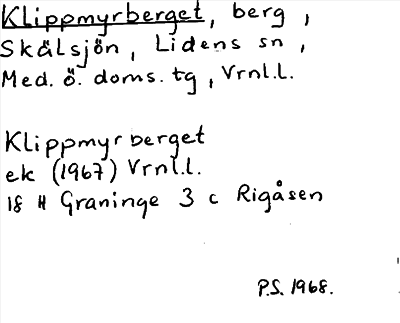 Klippmyrberget, berg,
Skälsjön, Lidens sn,
Med. ö. doms. tg, Vrnl.l.
Klippmyrberget
ek (1967) Vrnl.l.
18 H Graninge 3 c Rigåsen
P.S. 1968.